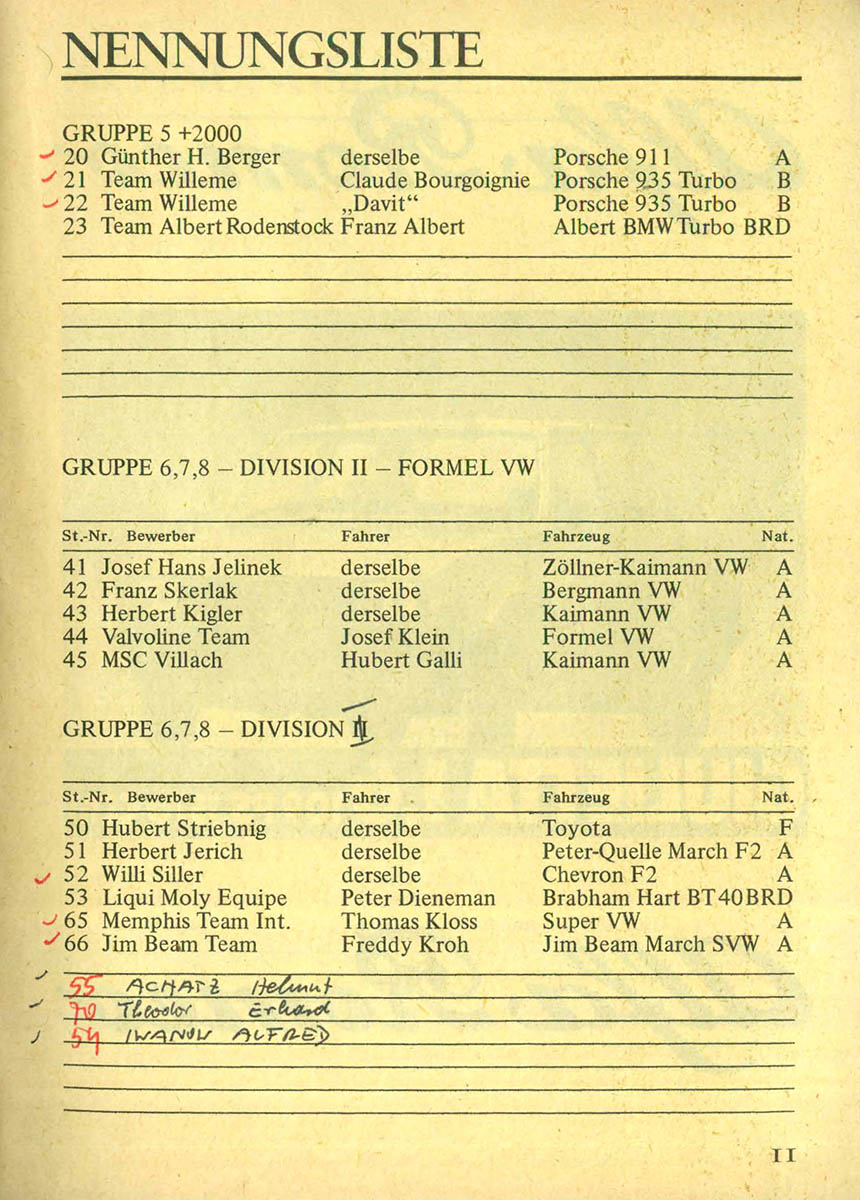 NENNUNGSLISTE
GRUPPE 5 +2000
20 Günther H. Berger derselbe Porsche 911 A
21 Team Willeme Claude Bourgoignie Porsche 935 Turbo B
22 Team Willeme „Davit“ Porsche 935 Turbo B
23 Team Albert Rodenstock Franz Albert Albert BMW Turbo BRD
GRUPPE 6,7,8 – DIVISION II – FORMEL VW
St.-Nr. Bewerber Fahrer Fahrzeug Nat.
41 Josef Hans Jelinek derselbe Zöllner-Kaimann VW A
42 Franz Skerlak derselbe Bergmann VW A
43 Herbert Kigler derselbe Kaimann VW A
44 Valvoline Team Josef Klein Formel VW A
45 MSC Villach Hubert Galli Kaimann VW A
GRUPPE 6,7,8 – DIVISION
St.-Nr. Bewerber Fahrer Fahrzeug Nat.
50 Hubert Striebnig derselbe Toyota F
51 Herbert Jerich derselbe Peter-Quelle March F2 A
52 Willi Siller derselbe Chevron F2 A
53 Liqui Moly Equipe Peter Dieneman Brabham Hart BT 40 BRD
65 Memphis Team Int. Thomas Kloss Super VW A
66 Jim Beam Team Freddy Kroh Jim Beam March SVW A
55 ACHATZ Helmut
70 Theodor Erhard
54 IWANOW ALFRED
11